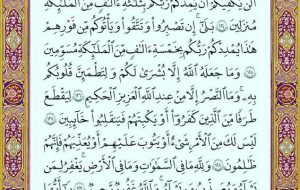 أَلَن يَكْفِيَكُمْ أَن يُمِدَّكُمْ رَبُّكُم بِثَلَٰثَةِ ءَالَٰفٍ مِّنَ ٱلْمَلَٰٓئِكَةِ
مُنزَلِينَ ١٢٤ بَلَىٰٓ إِن تَصْبِرُوا۟ وَتَتَّقُوا۟ وَيَأْتُوكُم مِّن فَوْرِهِمْ
هَٰذَا يُمْدِدْكُمْ رَبُّكُم بِخَمْسَةِ ءَالَٰفٍ مِّنَ ٱلْمَلَٰٓئِكَةِ مُسَوِّمِينَ
١٢٥ وَمَا جَعَلَهُ ٱللَّهُ إِلَّا بُشْرَىٰ لَكُمْ وَلِتَطْمَئِنَّ قُلُوبُكُم
بِهِۦ وَمَا ٱلنَّصْرُ إِلَّا مِنْ عِندِ ٱللَّهِ ٱلْعَزِيزِ ٱلْحَكِيمِ ١٢٦ لِيَقْطَعَ
طَرَفًا مِّنَ ٱلَّذِينَ كَفَرُوٓا۟ أَوْ يَكْبِتَهُمْ فَيَنقَلِبُوا۟ خَآئِبِينَ
١٢٧ لَيْسَ لَكَ مِنَ ٱلْأَمْرِ شَىْءٌ أَوْ يَتُوبَ عَلَيْهِمْ أَوْ يُعَذِّبَهُمْ فَإِنَّهُمْ
ظَٰلِمُونَ ١٢٨ وَلِلَّهِ مَا فِى ٱلسَّمَٰوَٰتِ وَمَا فِى ٱلْأَرْضِ يَغْفِرُ لِمَن